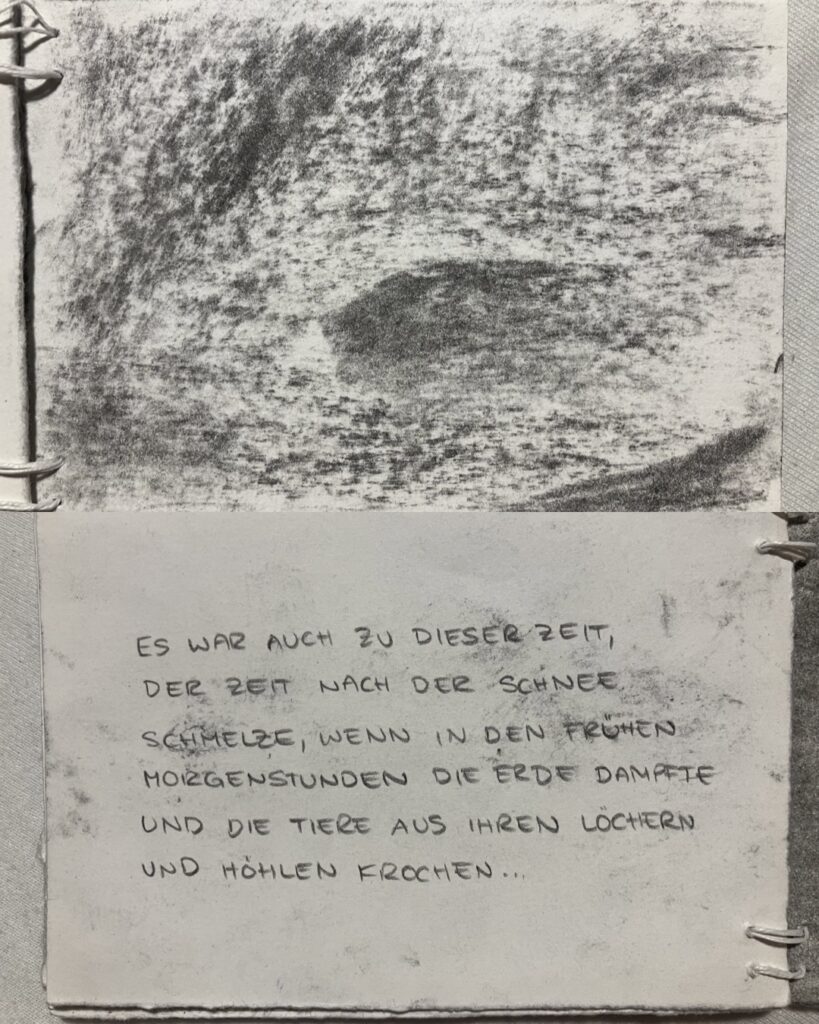 ES WAR AUCH ZU DIESER ZEIT,
DER ZEIT NACH DER SCHNEE
SCHMELZE, WENN IN DEN FRÜHEN
MORGENSTUNDEN DIE ERDE DAMPFTE
UND DIE TIERE AUS IHREN LÖCHERN
UND HÖHLEN KROCHEN...